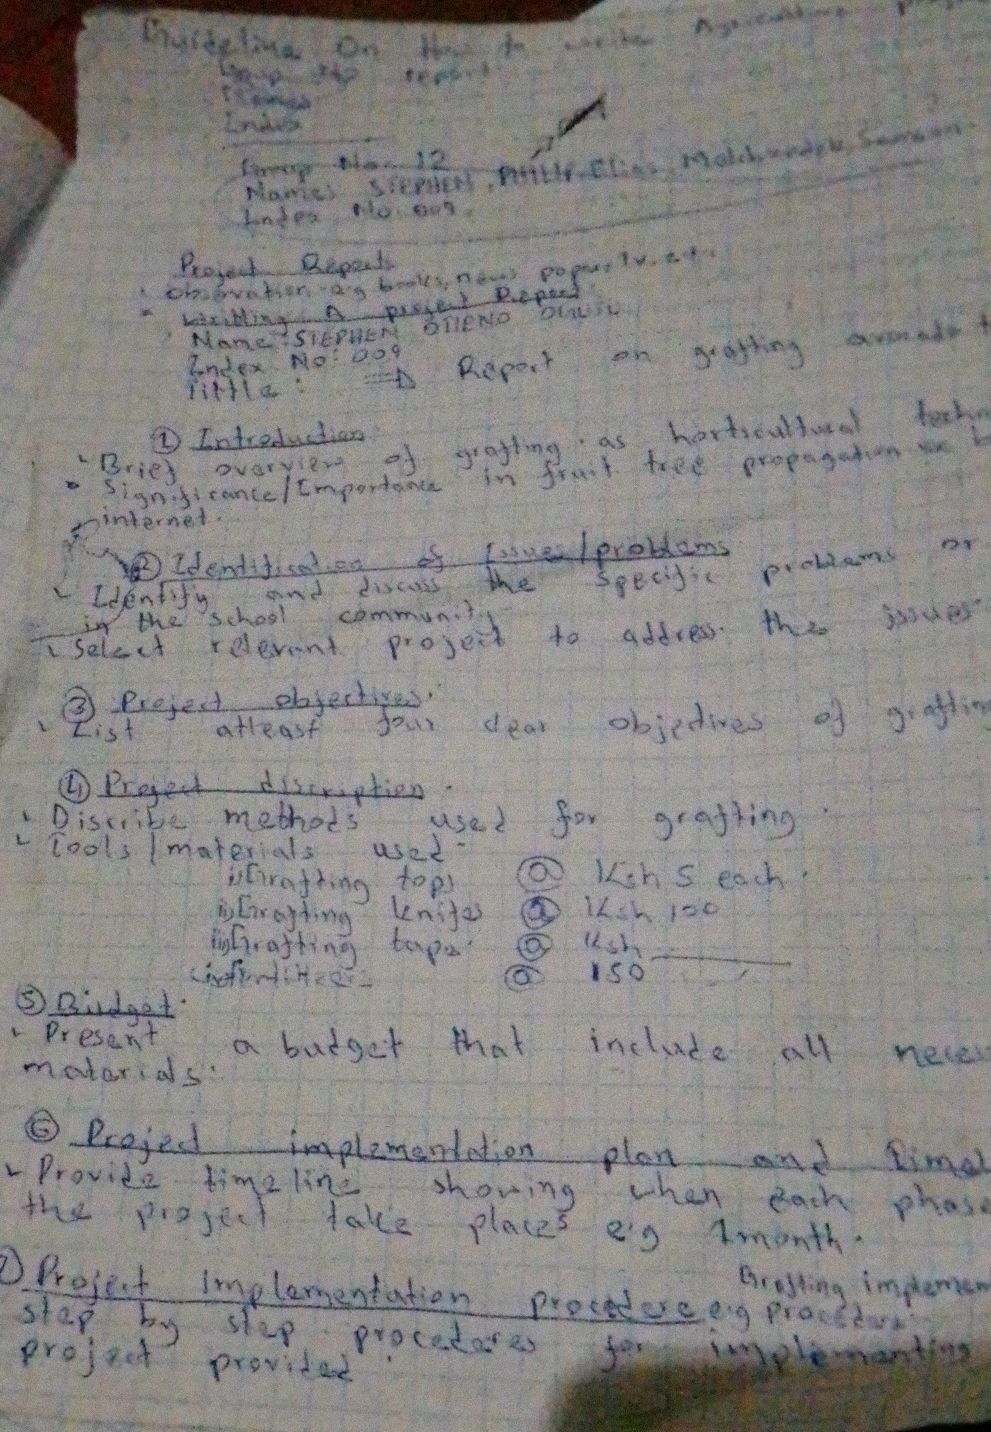 Guideline On How to write Agriculture
Group report
Names
Index
Group No. 12
Names STEPHEN, PHILIP, Elias, Samson
Index No. 009
Project Report
Observation e.g books, news paper, Tv, etc.
Writting A project Report
Name: STEPHEN OTIENO
Index No: 009
Tittle: ⇒ Report on grafting avocado
① Introduction
Brief overview of grafting as horticultural
Significance/Importance in fruit tree propagation
internet.
② Identification of Issues/problems
Identify and discuss the specific problems or
in the school community
Select relevant project to address the issues
③ Project objectives.
List atleast four clear objectives of grafting
④ Project discription.
Discribe methods used for grafting.
Tools/materials used
i) Grafting tops @ Ksh 5 each.
ii) Grafting knife @ Ksh 100
iii) Grafting tape @ Ksh
@ 150
⑤ Budget.
Present a budget that include all
materials.
⑥ Project implementation plan and
Provide timeline showing when each phase
the project take places e.g 1month.
Project Implementation procedere e.g Grafting
step by step procedures for implementing
project provided.